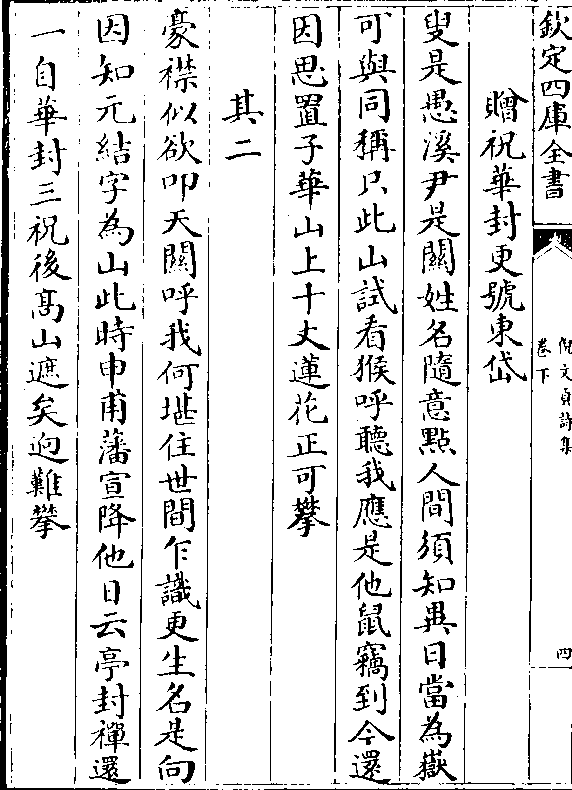 欽定四庫全書
倪文貞詩集
卷下
四
贈祝華封更號東岱
叟是愚溪尹是關姓名隨意點人間須知異日當為嶽
可與同稱只此山試看猴呼聽我應是他鼠竊到今還
因思置子華山上十丈蓮花正可攀
其二
豪襟似欲叩天關呼我何堪住世間乍識更生名是向
因知元結字為山此時申甫藩宣降他日云亭封禪還
一自華封三祝後髙山遮矣逈難攀